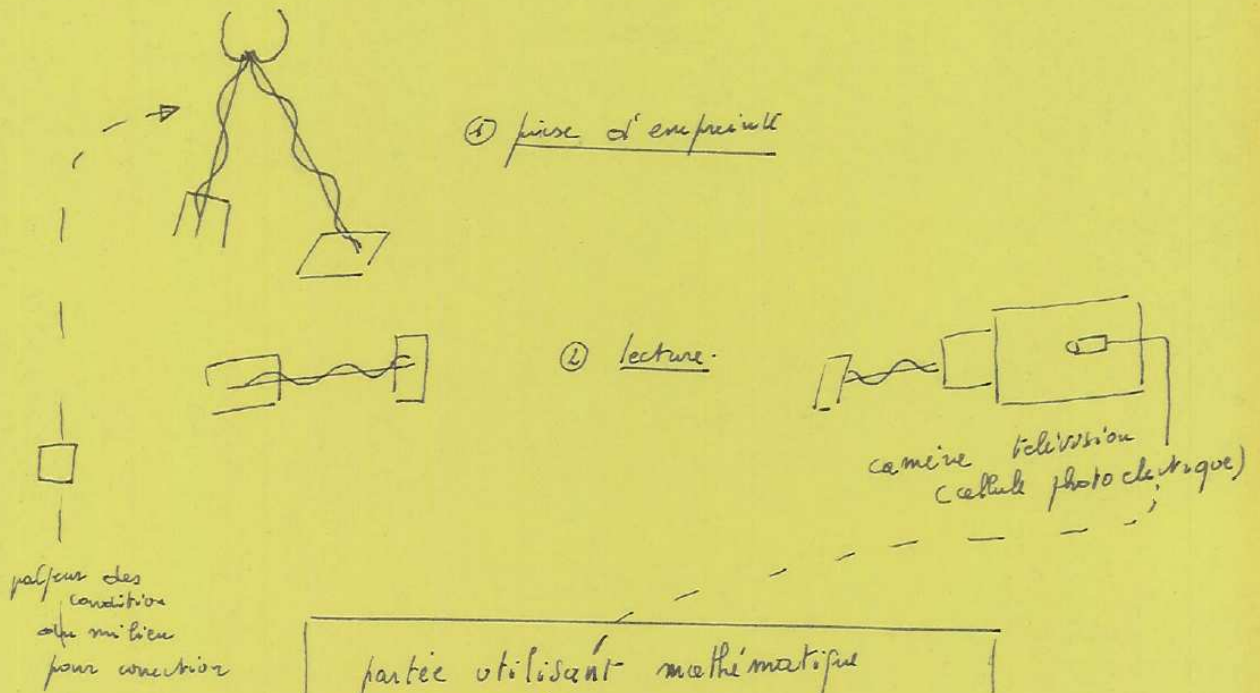 ① prise d'empreinte
② lecture.
caméra télévision
(cellule photoelectrique)
palpeur des
condition
du milieu
pour correction
partie utilisant mathématique